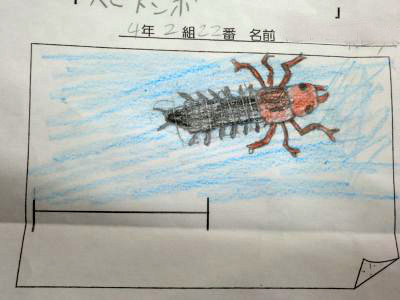 「ヘビトンボ 」
4年 2組 22番 名前